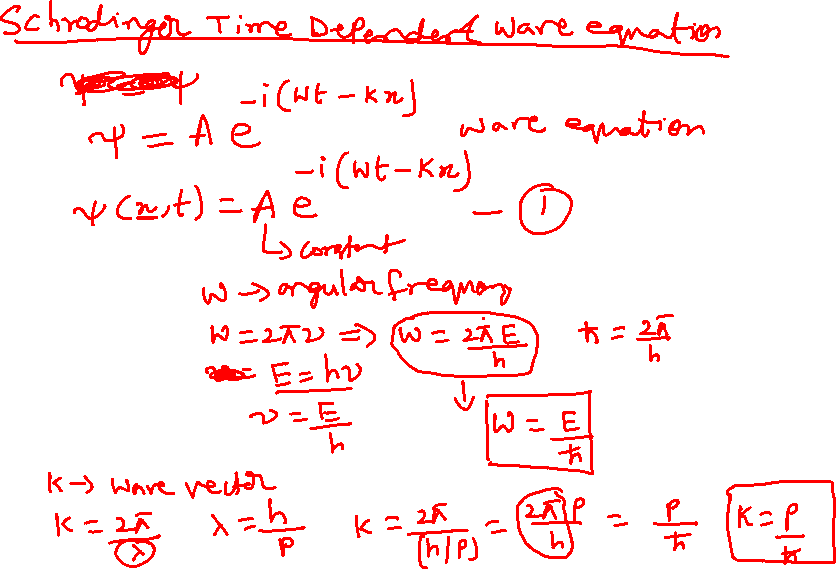 Schrodinger Time Dependent Wave equation
ψ = A e^{-i(wt-kx)} wave equation
ψ(x,t) = A e^{-i(wt-kx)} - ①
↳ constant
w → angular frequency
w = 2πν ⇒ w = 2πE/h ħ = 2π/h
= E = hν
ν = E/h ↓ w = E/ħ
k → wave vector
k = 2π/λ λ = h/p k = 2π/(h/p) = 2π/h p = p/ħ k = p/ħ